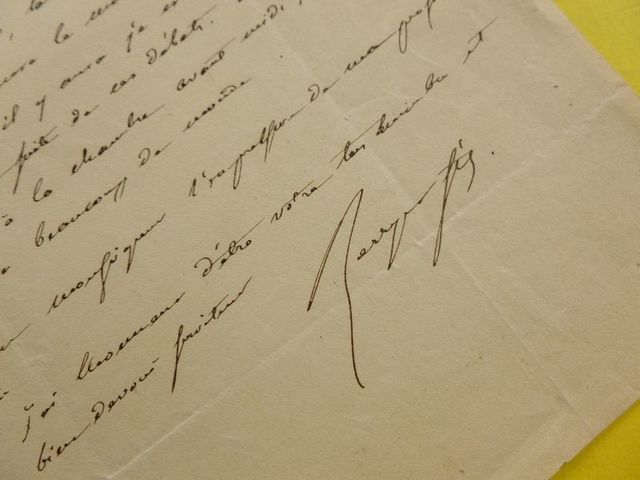 il y aura
suite de ces débats.
à la chambre avant midi,
beaucoup de monde.
monseigneur l'expression de ma
j'ai l'honneur d'être votre très humble et
bien dévoué serviteur
Berryer fils.